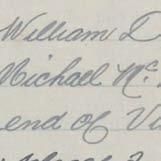 William D
Michael Mc
end of Vi